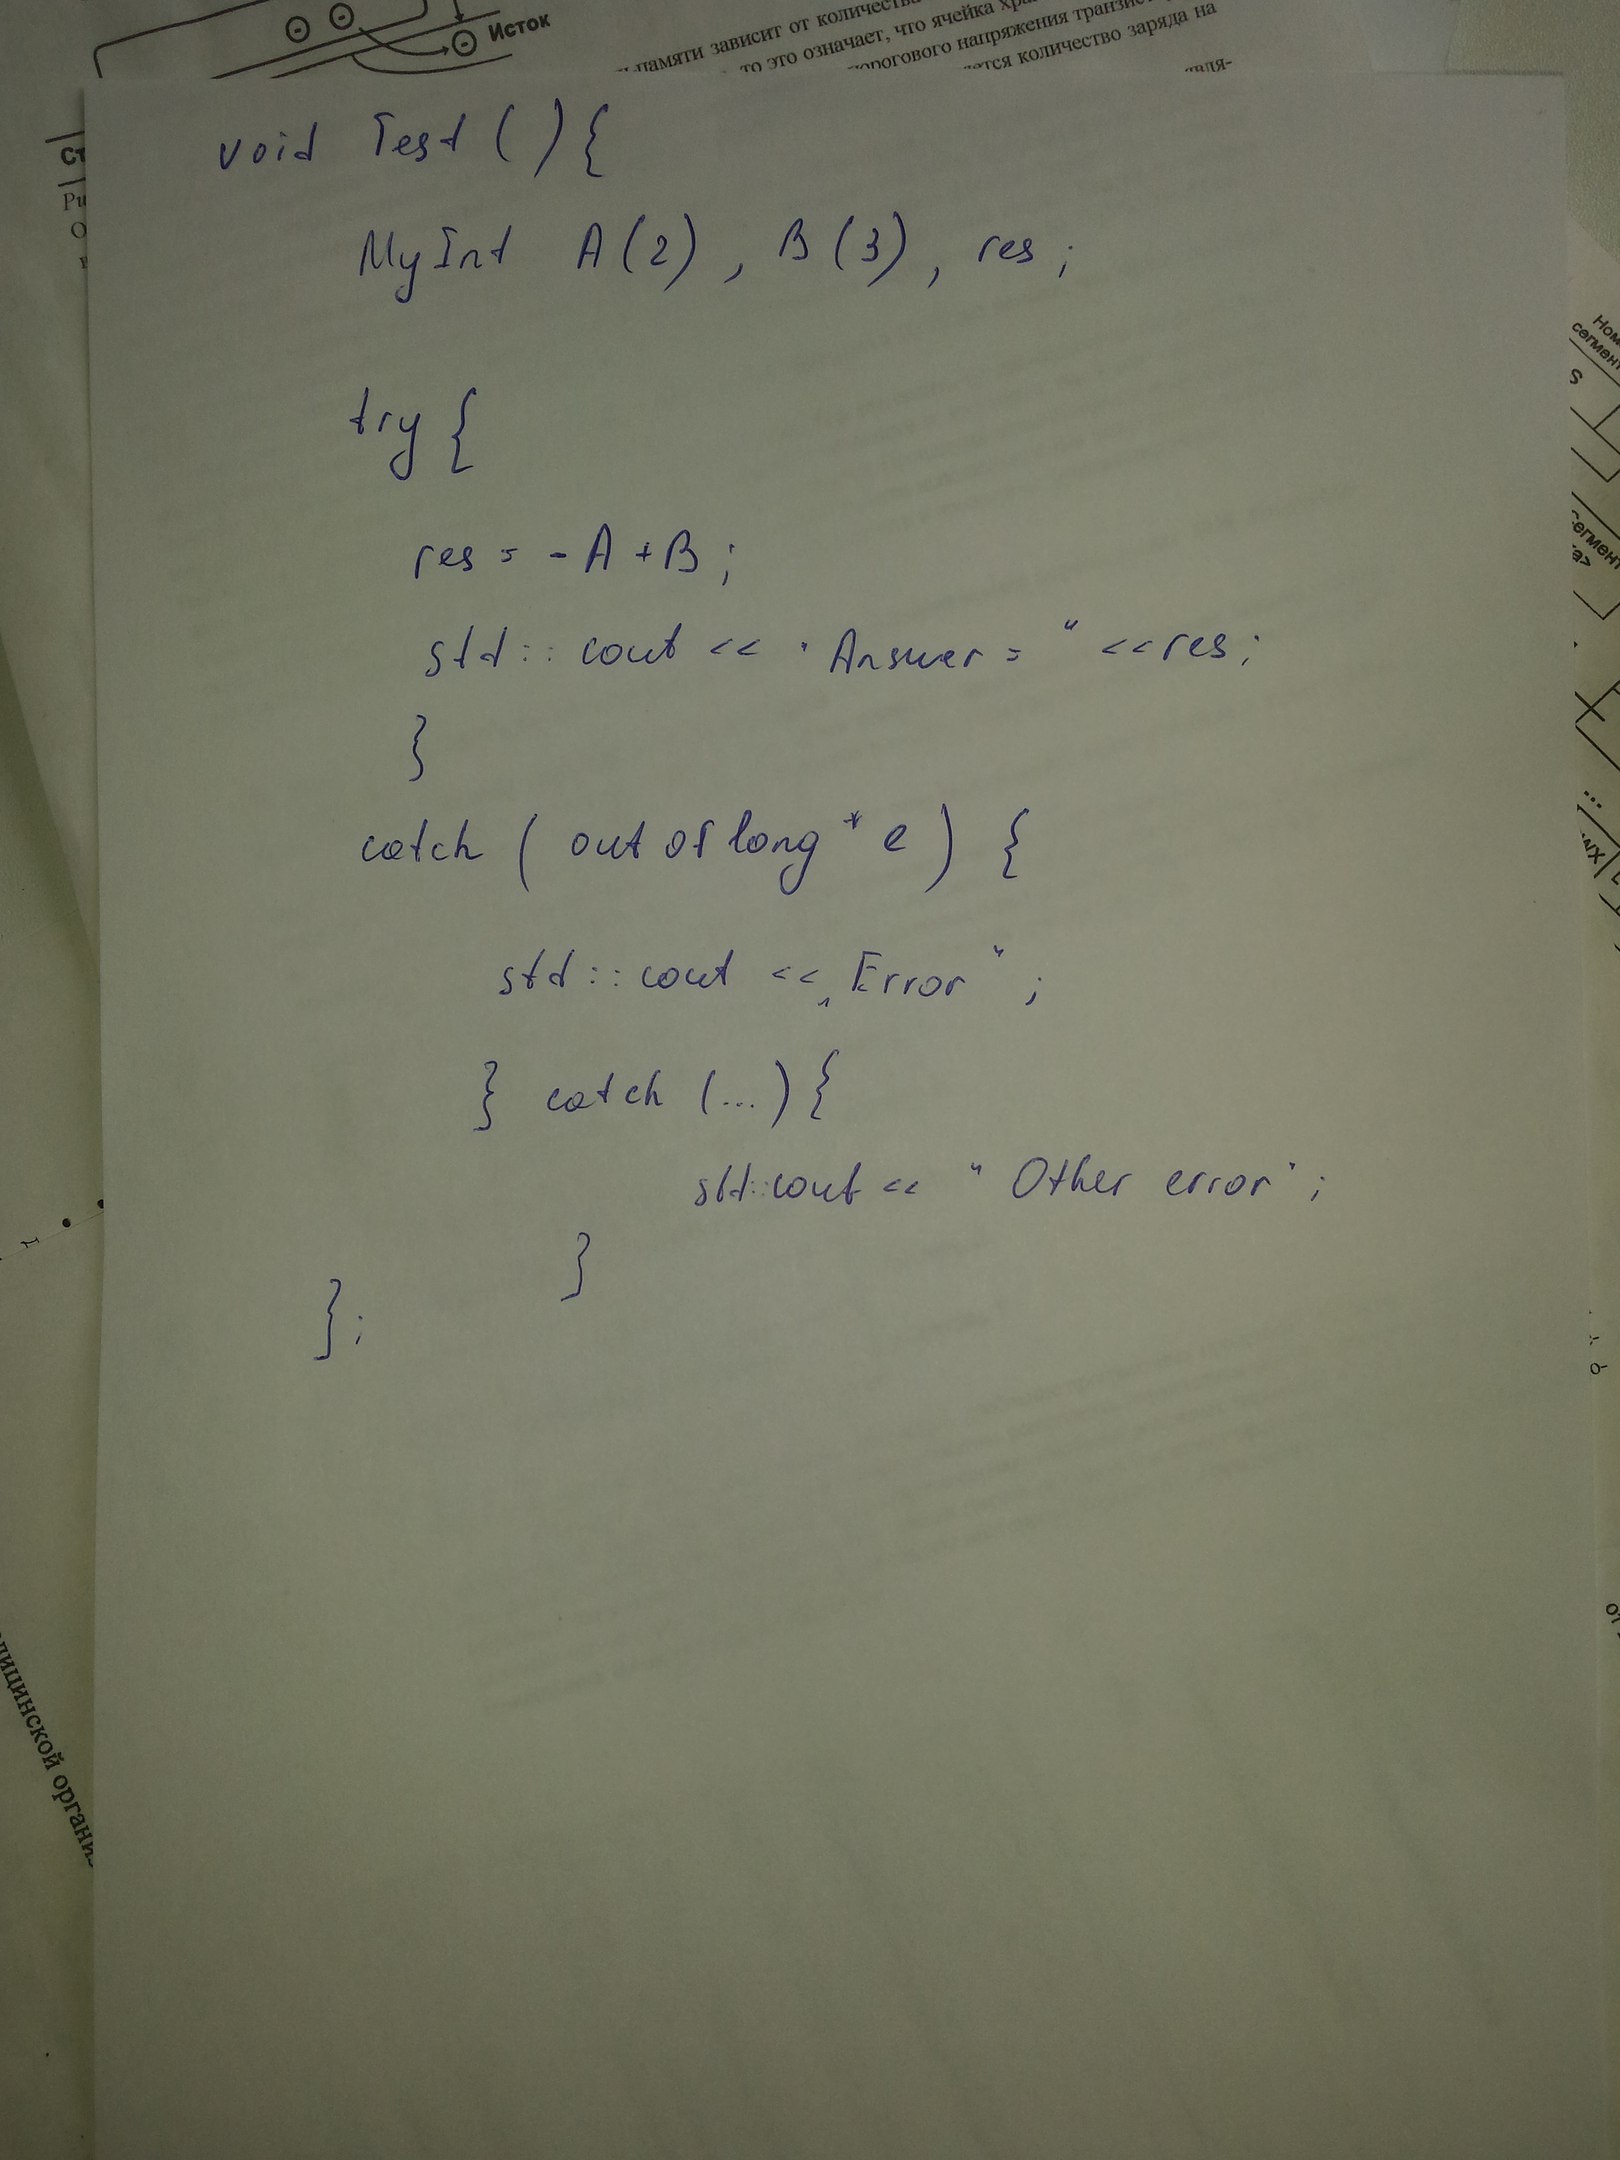 Исток
памяти зависит от количеств
то это означает, что ячейка
порогового напряжения
ется количество заряда на
вля-
void Test ( ) {
MyInt A (2) , B (3) , res ;
try {
res = - A + B ;
std :: cout << " Answer = " << res ;
}
catch ( out of long * e ) {
std :: cout << „ Error " ;
} catch (...) {
std::cout << " Other error" ;
}
} ;
Ст
Ри
О
Ном
сегмент
S
сегмент
ицинской органи